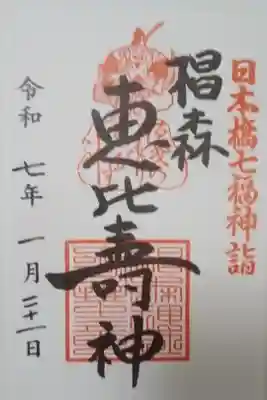 日本橋七福神詣
椙森
恵比壽神
令和七年一月二十一日